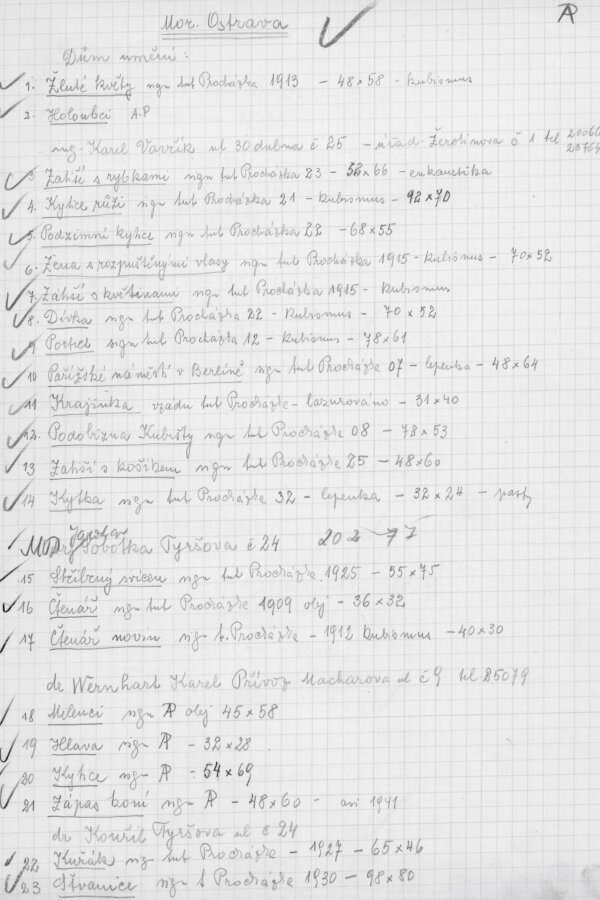 Mor. Ostrava
AP
Dům umění:
1. Žluté květy sign tut Procházka 1913 – 48×58 – kubismus
2. Holoubci A.P
ing. Karel Vavřík ul 30 dubna č 25 – úřad. Žerotínova č 1 tel 20066
23764
3 Zátiší s rybkami sign tut Procházka 23 – 32×66 – enkaustika
4. Kytice růží sign tut Procházka 21 – kubismus – 92×70
5. Podzimní kytice sign tut Procházka 22 – 68×55
6. Žena s rozpuštěnými vlasy sign tut Procházka 1915 – kubismus – 70×52
7. Zátiší s květinami sign tut Procházka 1915 – kubismus
8. Dívka sign tut Procházka 22 – kubismus – 70×52
9 Portret sign tut Procházka 12 – kubismus – 78×61
10 Pařížské náměstí v Berlíně sign tut Procházka 07 – lepenka – 48×64
11 Krajinka vzádu tut Procházka – lazurováno – 31×40
12. Podobizna Kubišty sign tut Procházka 08 – 78×53
13 Zátiší s košíkem sign tut Procházka 25 – 48×60
14 Kytka sign tut Procházka 32 – lepenka – 32×24 –
Jaroslav
MUDr Sobotka Tyršova č 24 202 77
15 Stříbrný svícen sign tut Procházka 1925 – 55×75
16 Čtenář sign tut Procházka 1909 olej – 36×32
17 Čtenář novin sign t. Procházka – 1912 kubismus – 40×30
dr Wernhart Karel Přívoz Macharova ul č 9 tel 25079
18 Milenci sign AP olej 45×58
19 Hlava sign AP – 32×28
20 Kytice sign AP – 54×69
21 Zápas koní sign AP – 48×60 – asi 1941
dr Kouřil Tyršova ul č 24
22 Kuřák sign tut Procházka – 1927 – 65×46
23 Štvanice sign t Procházka 1930 – 98×80